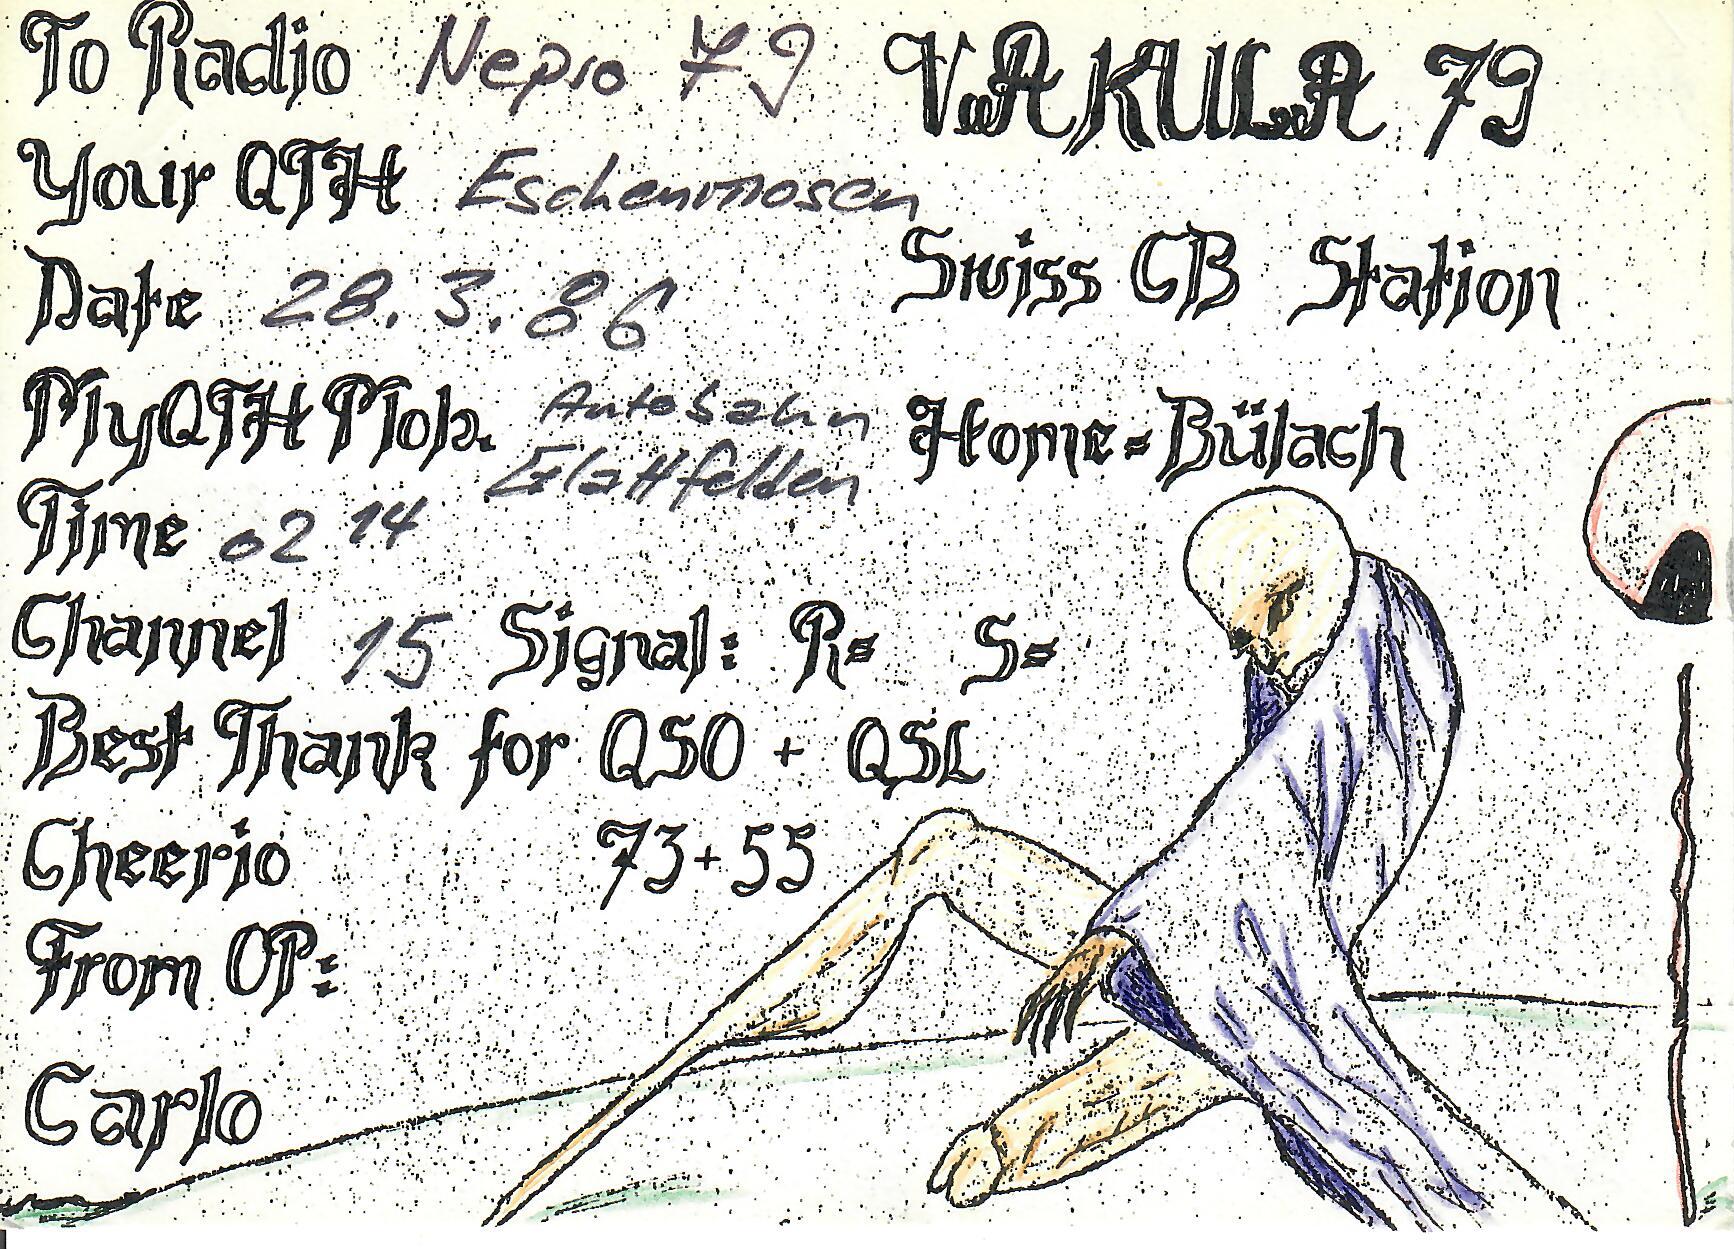 To Radio Nepro 79
VAKULA 79
Your QTH Eschenmosen
Swiss CB Station
Date 28.3.86
My QTH Mob. Autobahn
Glattfelden
Home=Bülach
Time 02 14
Channel 15 Signal: R= S=
Best Thank for QSO + QSL
Cheerio 73+55
From OP:
Carlo